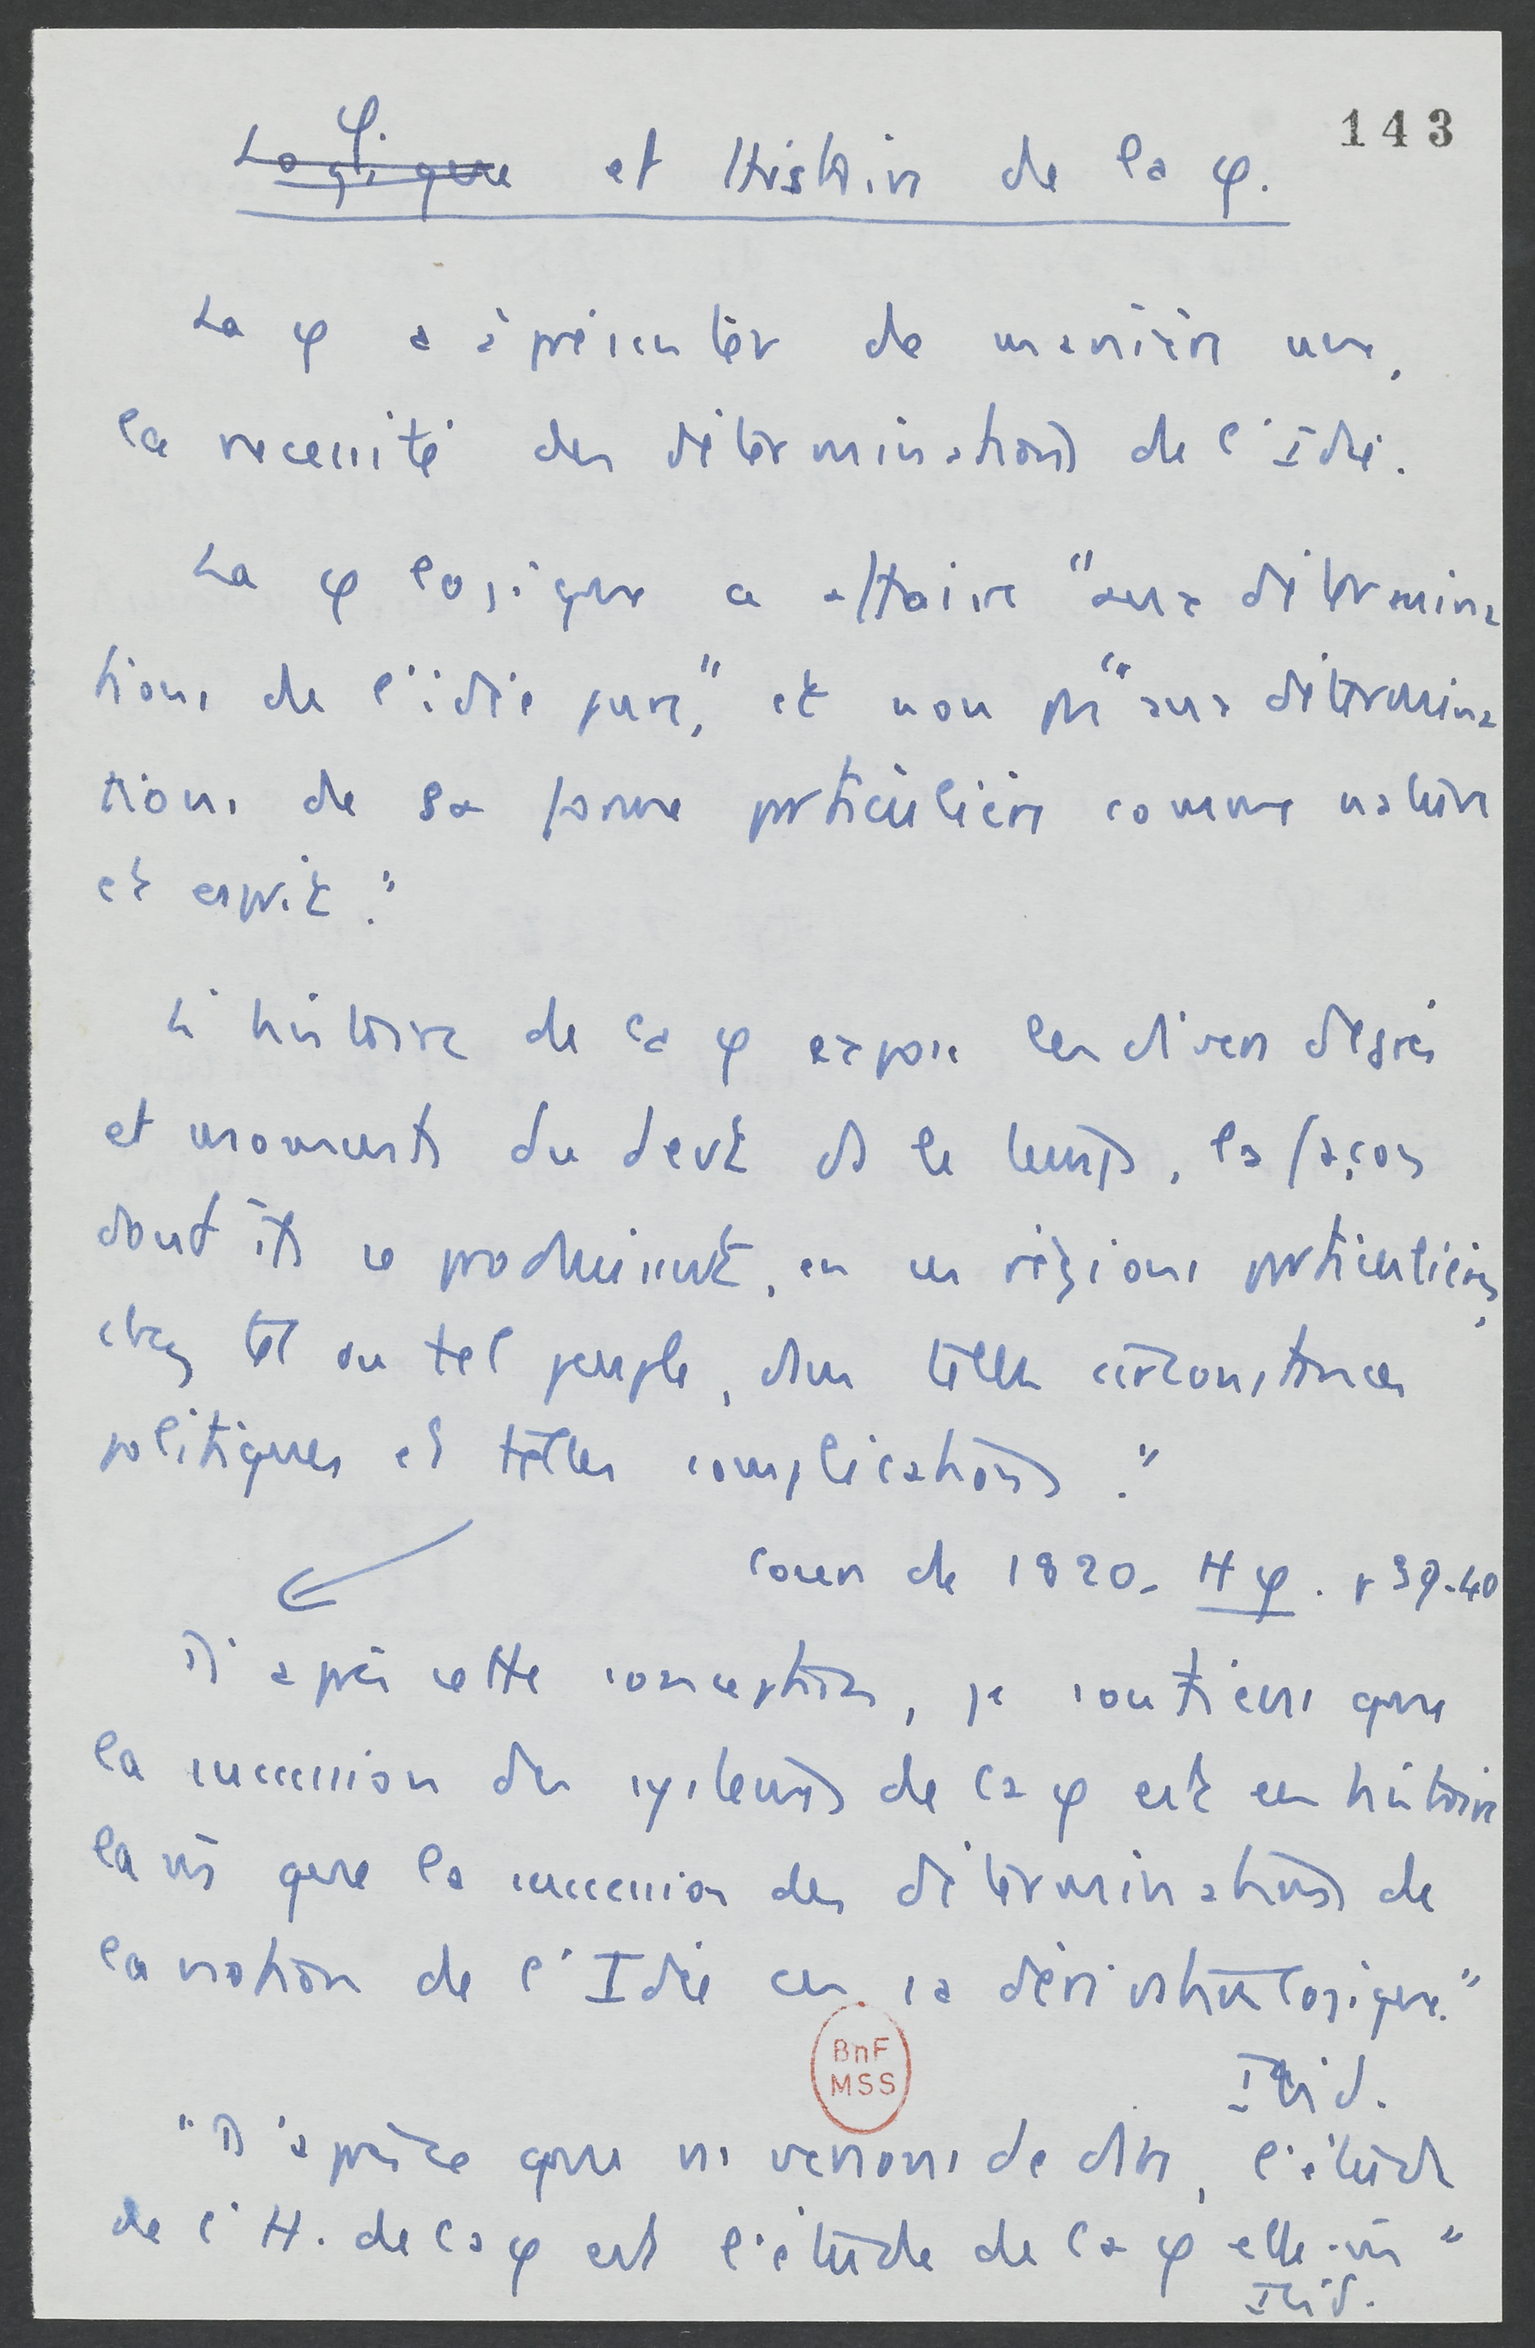 143
φ.
Logique et Histoire de la φ.
La φ a à présenter de manière une,
la necessité des déterminations de l'Idée.
La φ logique a affaire "aux détermina
tions de l'idée pure," et non pas "aux détermina
tions de sa forme particulière comme nature
et esprit."
L'histoire de la φ expose les divers degrés
et moments du devt ds le temps, la façon
dont ils se produisent, en ces régions particulières,
chez tel ou tel peuple, dans telles circonstances
politiques et telles complications."
Cours de 1820. Hφ. p 39-40
D'après cette conception, je soutiens que
la succession des systemes de la φ est en histoire
la mê que la succession des déterminations de
la notion de l'Idée en sa dérivation logique."
Ibid.
"D'après ce que ns venons de dire, l'étude
de l'H. de la φ est l'étude de la φ elle-mê"
Ibid.
BnF
MSS